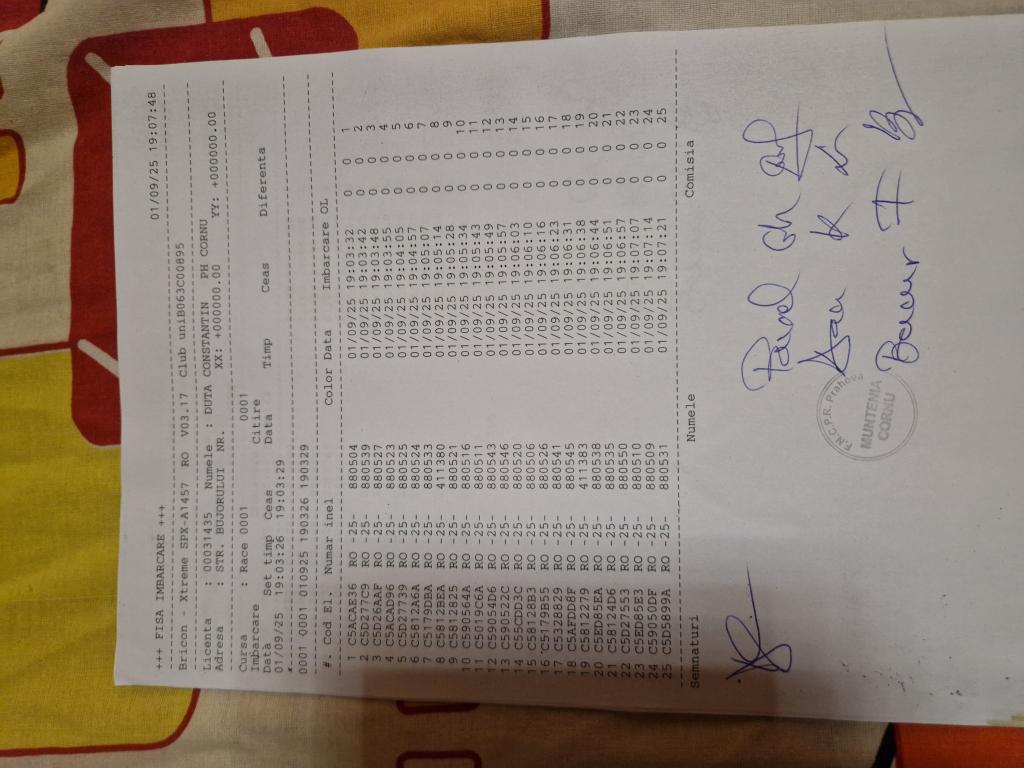 +++ FISA IMBARCARE +++ 01/09/25 19:07:48
Bricon - Xtreme SPX-A1457 RO V03.17 Club uniB063C00895
Licenta : 00031435 Numele : DUTA CONSTANTIN PH CORNU
Adresa : STR. BUJORULUI NR. XX: +000000.00 YY: +000000.00
Cursa : Race 0001 0001
Imbarcare Citire
Data Set timp Ceas Data Timp Ceas Diferenta
01/09/25 19:03:26 19:03:29
0001 0001 010925 190326 190329
#. Cod El. Numar inel Color Data Imbarcare OL
1 C5ACAE36 RO -25- 880504 01/09/25 19:03:32 0 0 1
2 C5D27CC9 RO -25- 880539 01/09/25 19:03:42 0 0 2
3 C5D26AAF RO -25- 880527 01/09/25 19:03:48 0 0 3
4 C5ACAD96 RO -25- 880523 01/09/25 19:03:55 0 0 4
5 C5D27739 RO -25- 880525 01/09/25 19:04:05 0 0 5
6 C5812A6A RO -25- 880524 01/09/25 19:04:57 0 0 6
7 C5179DBA RO -25- 880533 01/09/25 19:05:07 0 0 7
8 C5812BEA RO -25- 411380 01/09/25 19:05:14 0 0 8
9 C5812825 RO -25- 880521 01/09/25 19:05:28 0 0 9
10 C590564A RO -25- 880516 01/09/25 19:05:34 0 0 10
11 C5019C6A RO -25- 880511 01/09/25 19:05:43 0 0 11
12 C59054D6 RO -25- 880543 01/09/25 19:05:49 0 0 12
13 C590532C RO -25- 880546 01/09/25 19:05:57 0 0 13
14 C55CDD3C RO -25- 880520 01/09/25 19:06:03 0 0 14
15 C58128B3 RO -25- 880506 01/09/25 19:06:10 0 0 15
16 C5179B55 RO -25- 880526 01/09/25 19:06:16 0 0 16
17 C5328829 RO -25- 880541 01/09/25 19:06:23 0 0 17
18 C5AFDD8F RO -25- 880545 01/09/25 19:06:31 0 0 18
19 C5812279 RO -25- 411383 01/09/25 19:06:38 0 0 19
20 C5ED85EA RO -25- 880538 01/09/25 19:06:44 0 0 20
21 C58124D6 RO -25- 880535 01/09/25 19:06:51 0 0 21
22 C5D27553 RO -25- 880550 01/09/25 19:06:57 0 0 22
23 C5ED85E3 RO -25- 880510 01/09/25 19:07:07 0 0 23
24 C59050DF RO -25- 880509 01/09/25 19:07:14 0 0 24
25 C5D5899A RO -25- 880531 01/09/25 19:07:21 0 0 25
Semnaturi Numele Comisia
F.N.C.P.R. Prahova
MUNTENIA
CORNU